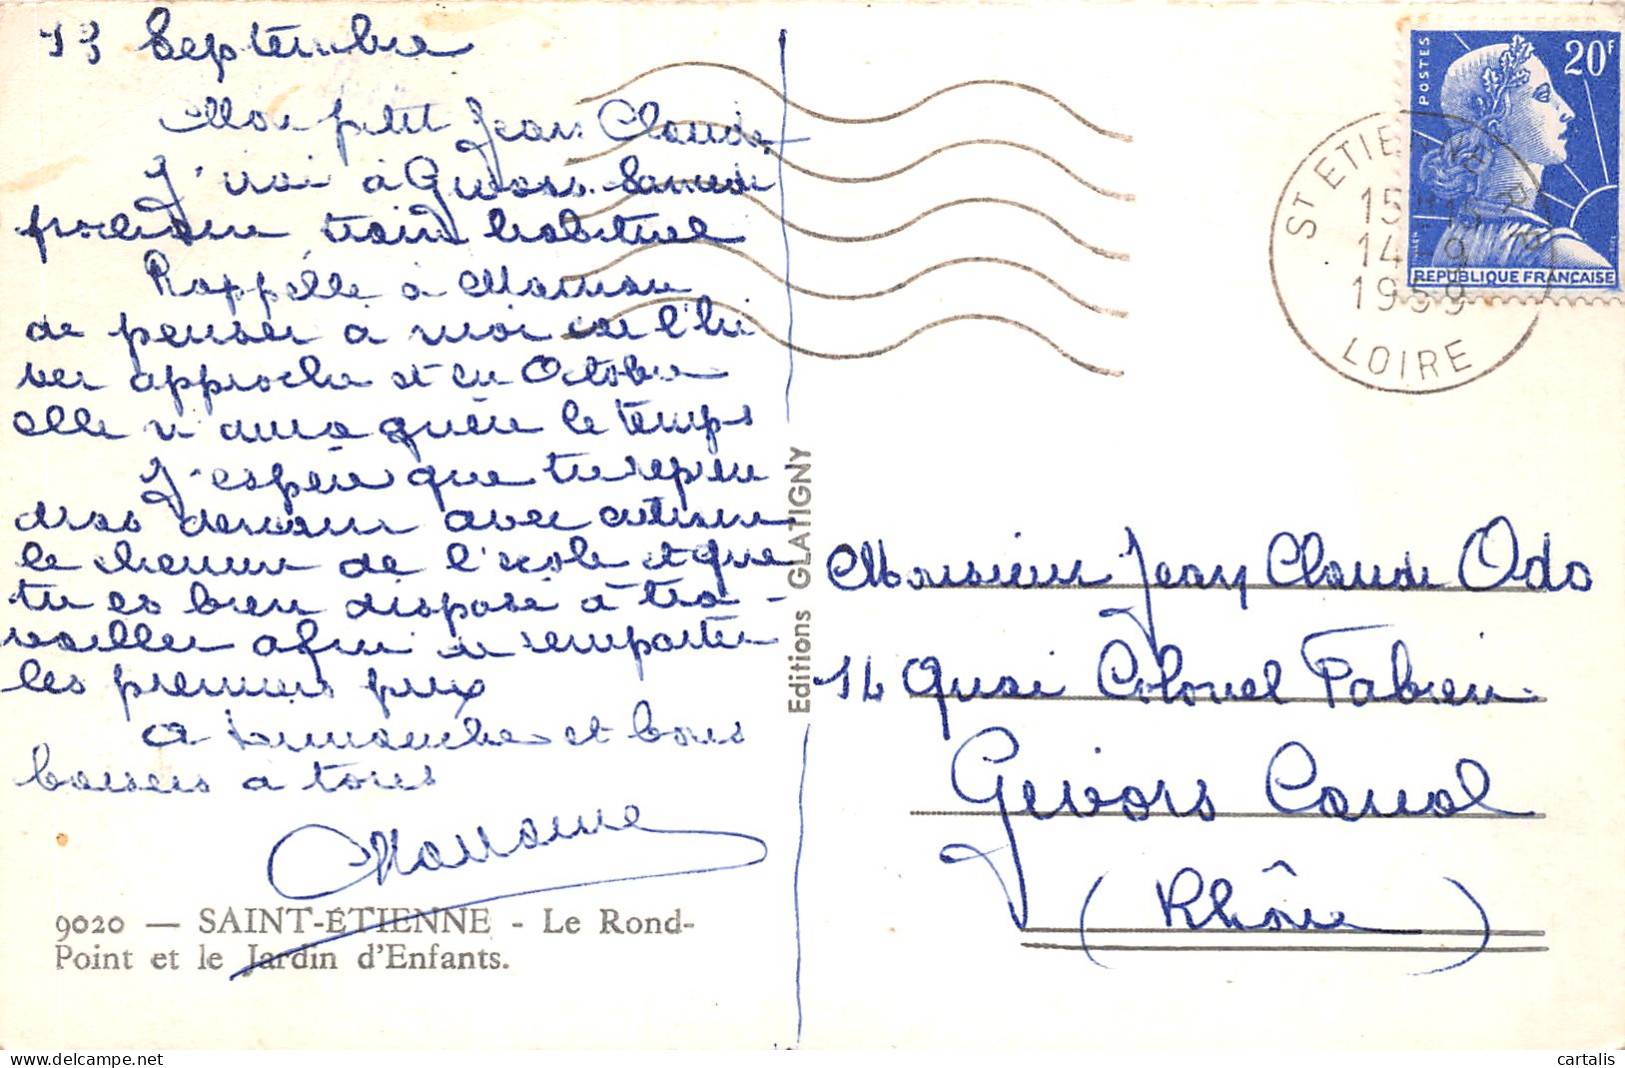 13 Septembre
Mon petit Jean Claude
J'irai à Givors Samedi
prochain train habituel
Rappelle à Maman
de penser à moi car l'hi
ver approche et en Octobre
elle n'aura guère le temps
J'espère que tu repren
dras demain avec entrain
le chemin de l'école et que
tu es bien disposé à tra-
vailler afin d'en remporter
les premiers prix
A Dimanche et bons
baisers à tous
Marraine
9020 — SAINT-ÉTIENNE - Le Rond-
Point et le Jardin d'Enfants.
Editions GLATIGNY
POSTES 20F
REPUBLIQUE FRANÇAISE
ST ETIENNE R.P.
15H15
14-9
1959
LOIRE
Monsieur Jean Claude Odo
14 Quai Colonel Fabien
Givors Canal
(Rhône)
cartalis